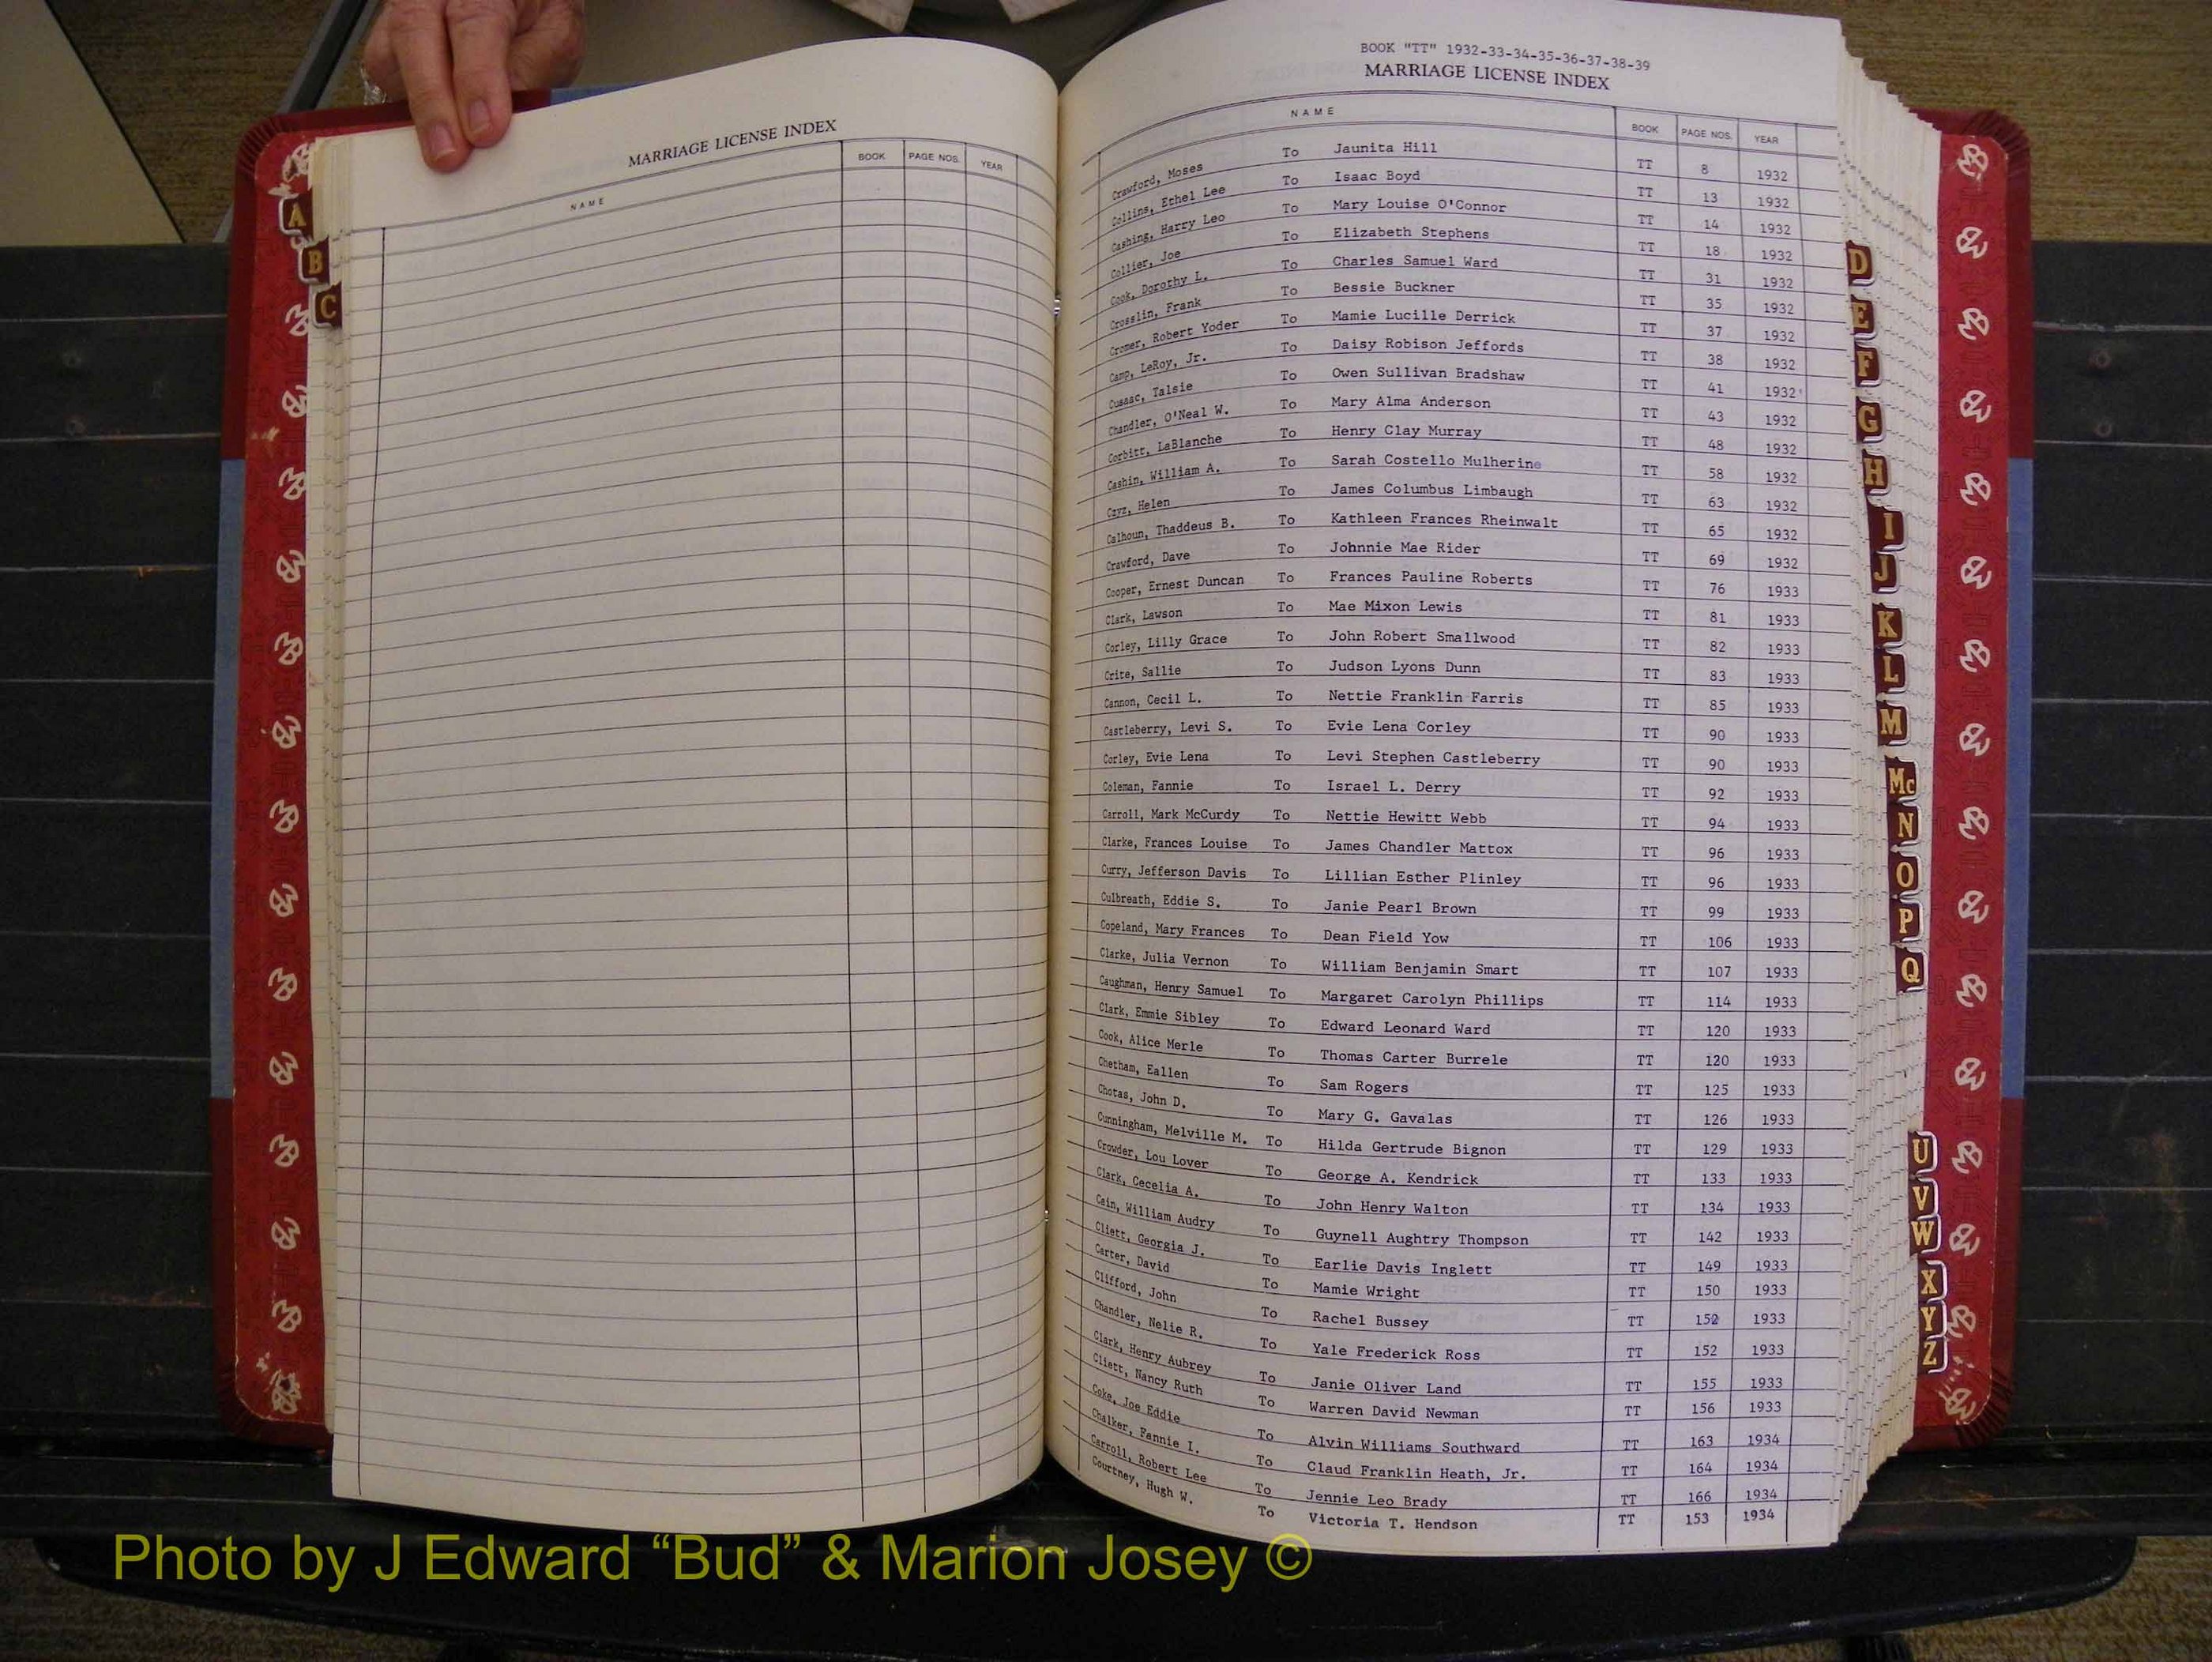 MARRIAGE LICENSE INDEX
NAME BOOK PAGE NOS. YEAR
A
B
C
BOOK "TT" 1932-33-34-35-36-37-38-39
MARRIAGE LICENSE INDEX
NAME BOOK PAGE NOS. YEAR
Crawford, Moses To Jaunita Hill TT 8 1932
Collins, Ethel Lee To Isaac Boyd TT 13 1932
Cashing, Harry Leo To Mary Louise O'Connor TT 14 1932
Collier, Joe To Elizabeth Stephens TT 18 1932
Cook, Dorothy L. To Charles Samuel Ward TT 31 1932
Crosslin, Frank To Bessie Buckner TT 35 1932
Cromer, Robert Yoder To Mamie Lucille Derrick TT 37 1932
Camp, LeRoy, Jr. To Daisy Robison Jeffords TT 38 1932
Cusaac, Talsie To Owen Sullivan Bradshaw TT 41 1932
Chandler, O'Neal W. To Mary Alma Anderson TT 43 1932
Corbitt, LaBlanche To Henry Clay Murray TT 48 1932
Cashin, William A. To Sarah Costello Mulherine TT 58 1932
Czyz, Helen To James Columbus Limbaugh TT 63 1932
Calhoun, Thaddeus B. To Kathleen Frances Rheinwalt TT 65 1932
Crawford, Dave To Johnnie Mae Rider TT 69 1932
Cooper, Ernest Duncan To Frances Pauline Roberts TT 76 1933
Clark, Lawson To Mae Mixon Lewis TT 81 1933
Corley, Lilly Grace To John Robert Smallwood TT 82 1933
Crite, Sallie To Judson Lyons Dunn TT 83 1933
Cannon, Cecil L. To Nettie Franklin Farris TT 85 1933
Castleberry, Levi S. To Evie Lena Corley TT 90 1933
Corley, Evie Lena To Levi Stephen Castleberry TT 90 1933
Coleman, Fannie To Israel L. Derry TT 92 1933
Carroll, Mark McCurdy To Nettie Hewitt Webb TT 94 1933
Clarke, Frances Louise To James Chandler Mattox TT 96 1933
Curry, Jefferson Davis To Lillian Esther Plinley TT 96 1933
Culbreath, Eddie S. To Janie Pearl Brown TT 99 1933
Copeland, Mary Frances To Dean Field Yow TT 106 1933
Clarke, Julia Vernon To William Benjamin Smart TT 107 1933
Caughman, Henry Samuel To Margaret Carolyn Phillips TT 114 1933
Clark, Emmie Sibley To Edward Leonard Ward TT 120 1933
Cook, Alice Merle To Thomas Carter Burrele TT 120 1933
Chetham, Eallen To Sam Rogers TT 125 1933
Chotas, John D. To Mary G. Gavalas TT 126 1933
Cunningham, Melville M. To Hilda Gertrude Bignon TT 129 1933
Crowder, Lou Lover To George A. Kendrick TT 133 1933
Clark, Cecelia A. To John Henry Walton TT 134 1933
Cain, William Audry To Guynell Aughtry Thompson TT 142 1933
Cliett, Georgia J. To Earlie Davis Inglett TT 149 1933
Carter, David To Mamie Wright TT 150 1933
Clifford, John To Rachel Bussey TT 152 1933
Chandler, Nelie R. To Yale Frederick Ross TT 152 1933
Clark, Henry Aubrey To Janie Oliver Land TT 155 1933
Cliett, Nancy Ruth To Warren David Newman TT 156 1933
Coke, Joe Eddie To Alvin Williams Southward TT 163 1934
Chalker, Fannie I. To Claud Franklin Heath, Jr. TT 164 1934
Carroll, Robert Lee To Jennie Leo Brady TT 166 1934
Courtney, Hugh W. To Victoria T. Hendson TT 153 1934
D
E
F
G
H
I
J
K
L
M
Mc
N
O
P
Q
U
V
W
X
Y
Z
Photo by J Edward “Bud” & Marion Josey ©